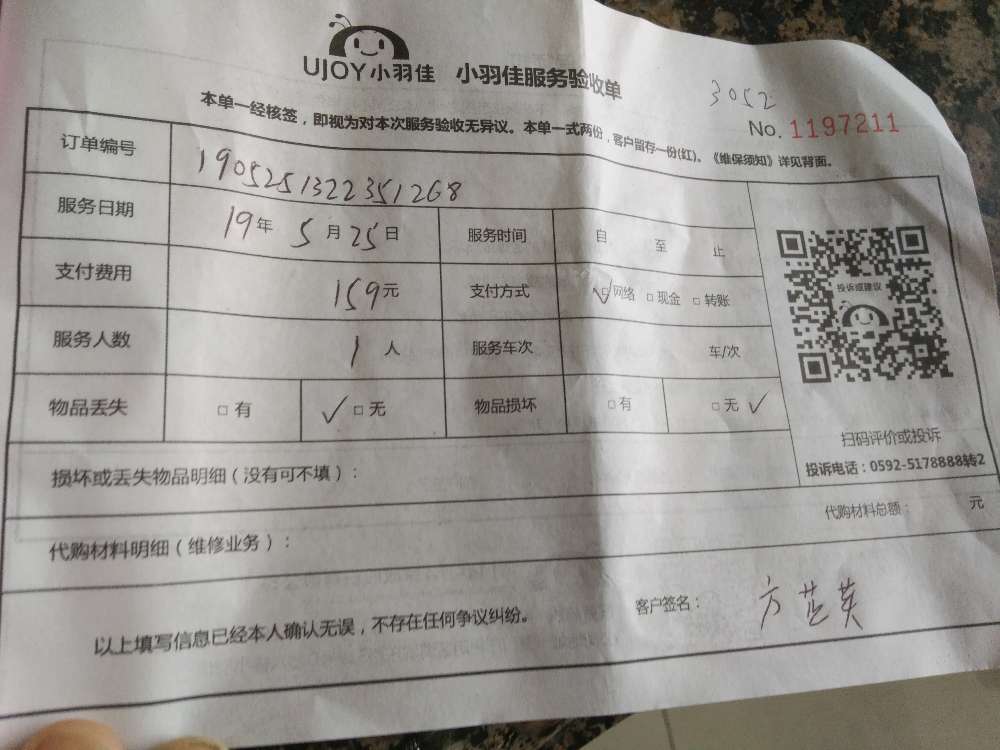 UJOY小羽佳 小羽佳服务验收单
3052
No. 1197211
本单一经核签，即视为对本次服务验收无异议。本单一式两份，客户留存一份(红)。《维保须知》详见背面。
订单编号 1905251322351268
服务日期 19年 5月25日 服务时间 自 至 止
支付费用 159元 支付方式 ✓□网络 □现金 □转账
服务人数 1人 服务车次 车/次
物品丢失 □有 ✓□无 物品损坏 □有 □无✓
投诉或建议
扫码评价或投诉
投诉电话：0592-5178888转2
损坏或丢失物品明细（没有可不填）：
代购材料明细（维修业务）： 代购材料总额： 元
以上填写信息已经本人确认无误，不存在任何争议纠纷。 客户签名： 方芸英